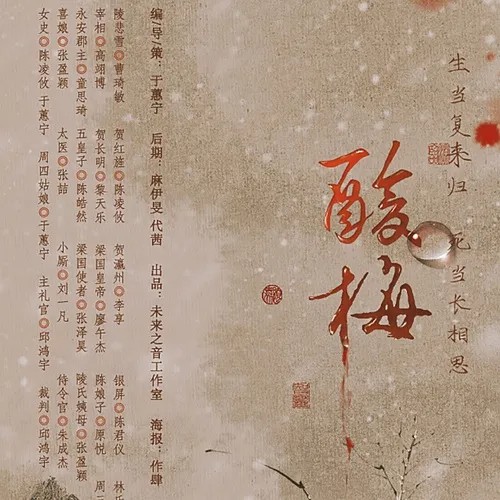 生当复来归 死当长相思
酸梅
编/导/策：于蕙宁 后期：麻伊旻 代茜 出品：未来之音工作室 海报：作肆
陵悲雪 曹琦敏 贺红旌 陈凌攸 贺瀛州 李享 银屏 陈君仪
宰相 高翊博 贺长明 黎天乐 梁国皇帝 廖午杰 陈娘子 原悦
永安郡主 童思琦 五皇子 陈皓然 梁国使者 张泽昊 陵氏姨母 张盈颖
喜娘 张盈颖 太医 张喆 小厮 刘一凡 侍令官 朱成杰
女史 陈凌攸 于蕙宁 周四姑娘 于蕙宁 主礼官 邱鸿宇 裁判 邱鸿宇